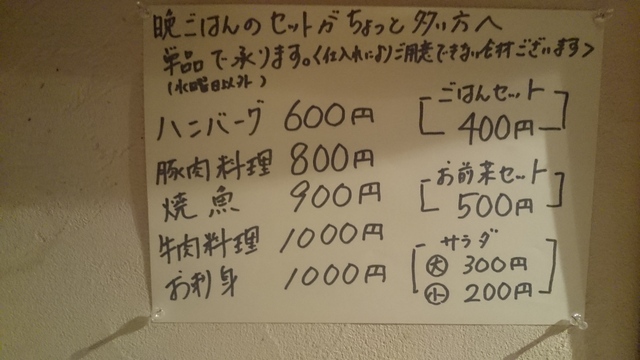 晩ごはんのセットがちょっと多い方へ
単品で承ります。<仕入れによりご用意できない食材ございます>
(水曜日以外)
ハンバーグ 600円
豚肉料理 800円
焼魚 900円
牛肉料理 1000円
お刺身 1000円
ごはんセット
400円
お前菜セット
500円
サラダ
大 300円
小 200円